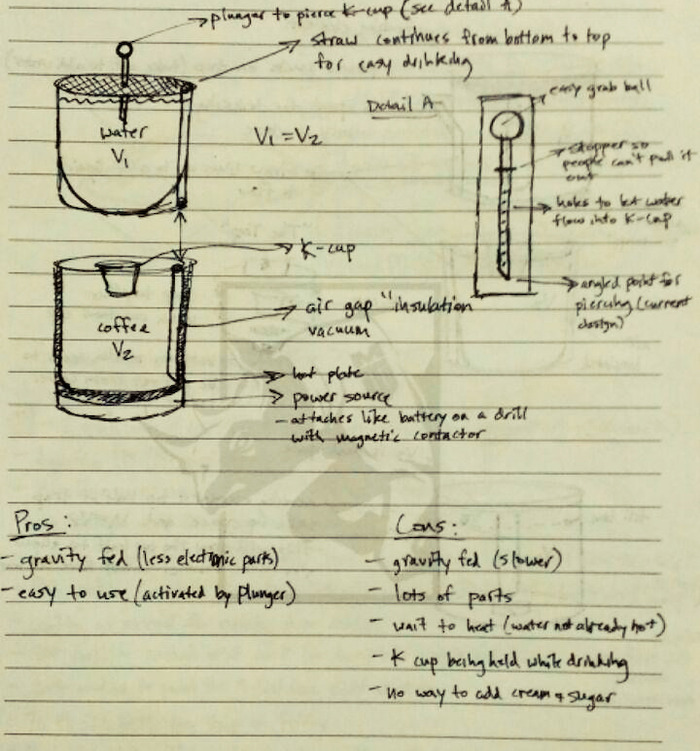 plunger to pierce K-cup (see detail A)
straw continues from bottom to top
for easy drinking
Detail A
easy grab ball
water
V1
V1 = V2
stopper so
people can't pull it
out
holes to let water
flow into K-cup
K-cup
angled point for
piercing (current
design)
coffee
V2
air gap "insulation
vacuum
hot plate
power source
- attaches like battery on a drill
with magnetic contactor
Pros:
- gravity fed (less electronic parts)
- easy to use (activated by plunger)
Cons:
- gravity fed (slower)
- lots of parts
- wait to heat (water not already hot)
- K cup being held while drinking
- no way to add cream & sugar